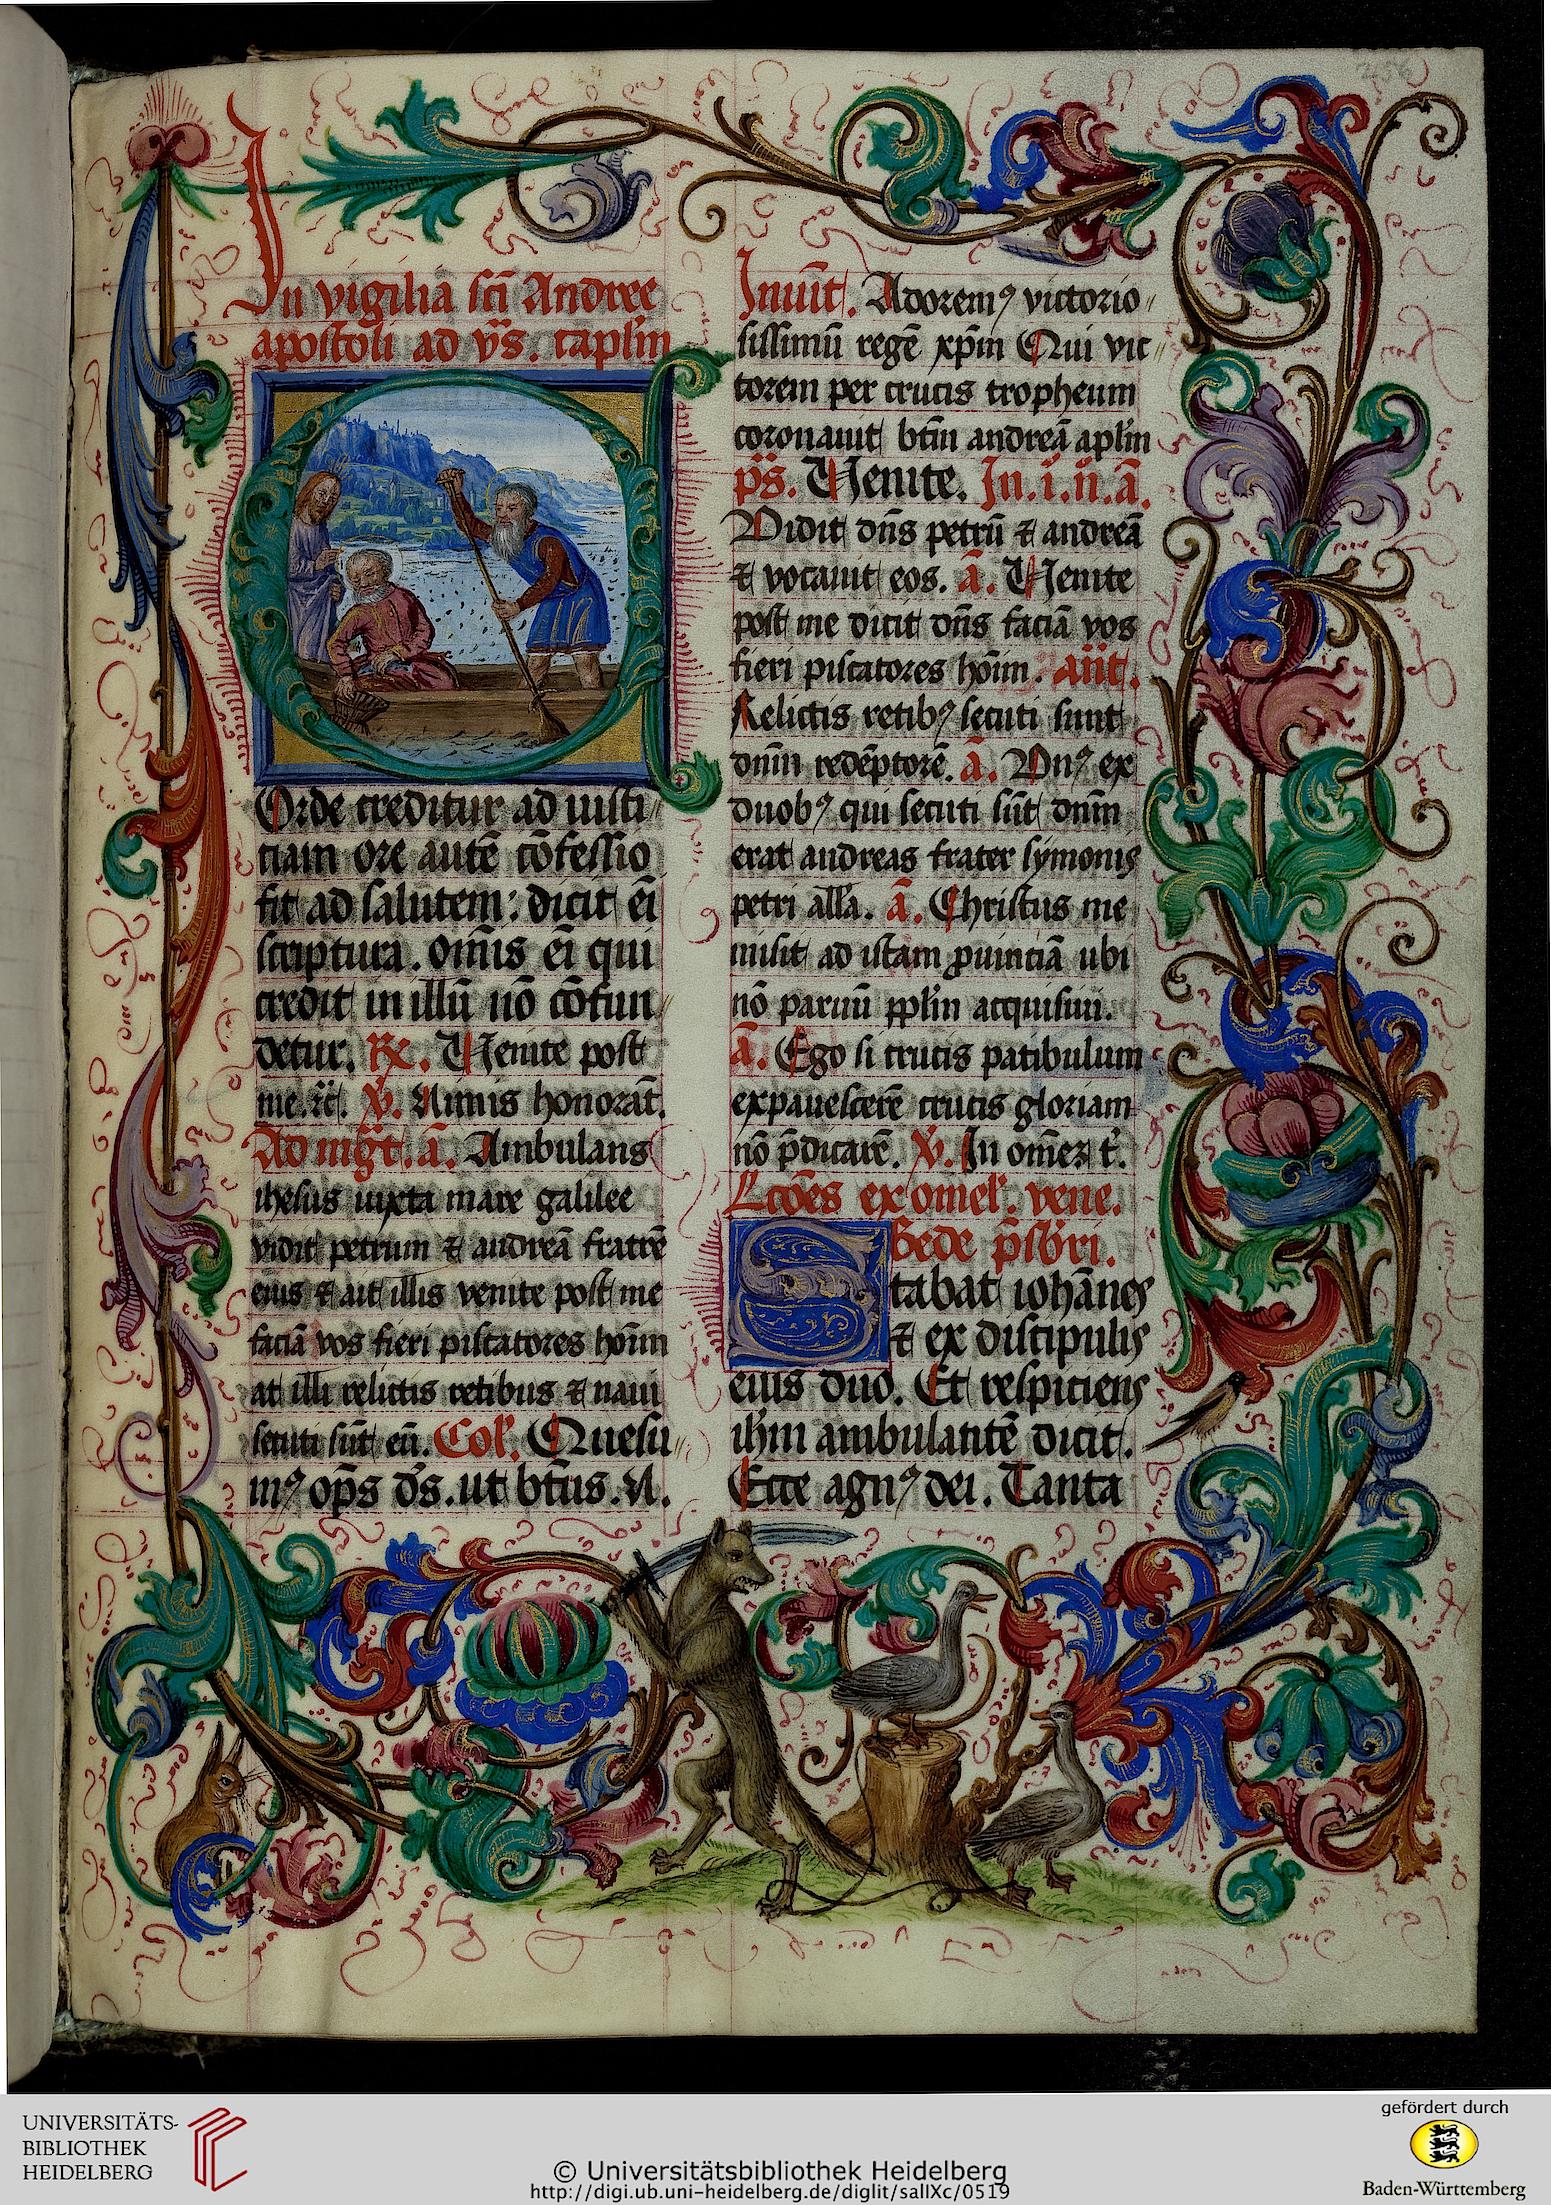 In vigiliā sc̄i Andree
apostoli ad vs̄. capl'm
Corde creditur ad iusti//
ciam ore autē cōfessio
fit ad salutem: dicit eī
scriptura. om̄is eī qui
credit in illū nō cōfun//
detur. R. Uenite post
me. ⁊c̄. V. Nimis honorat̄.
Ad mgt̄. ā. Ambulans
ihesus iuxta mare galilee
vidit petrum ⁊ andreā fratrē
eius ⁊ ait illis venite post me
faciā vos fieri piscatores hoīm
at illi relictis retibus ⁊ naui
secuti sūt eū. Col'. Quesu//
mꝰ op̄s ds̄. ut bt̄us. A.
Inuit̄. Adoremꝰ victorio//
sissimū regē xp̄m Qui vic//
torem per crucis tropheum
coronauit bt̄m andreā apl'm
ps̄. Uenite. In. i. n̊. ā.
Vidit dn̄s petrū ⁊ andreā
⁊ vocauit eos. ā. Uenite
post me dicit dn̄s faciā vos
fieri piscatores hoīm. Ant̄.
Relictis retibꝰ secuti sunt
dn̄m redēptorē. ā. Vnꝰ ex
duobꝰ qui secuti sūt dn̄m
erat andreas frater symonis
petri all'a. ā. Christus me
misit ad istam ꝓuinciā ubi
nō paruū ppl'm acquisiui.
ā. Ego si crucis patibulum
expauescerē crucis gloriam
nō p̄dicarē. V. In om̄eꝫ t'.
Lc̄ōes ex omel'. vene.
Bede p̄sb̄ri.
Stabat iohānes
⁊ ex discipulis
eius duo. Et respiciens
ih̄m ambulantē dicit.
Ecce agnꝰ dei. Tanta
256
UNIVERSITÄTS-
BIBLIOTHEK
HEIDELBERG
© Universitätsbibliothek Heidelberg
http://digi.ub.uni-heidelberg.de/diglit/salIXc/0519
gefördert durch
Baden-Württemberg